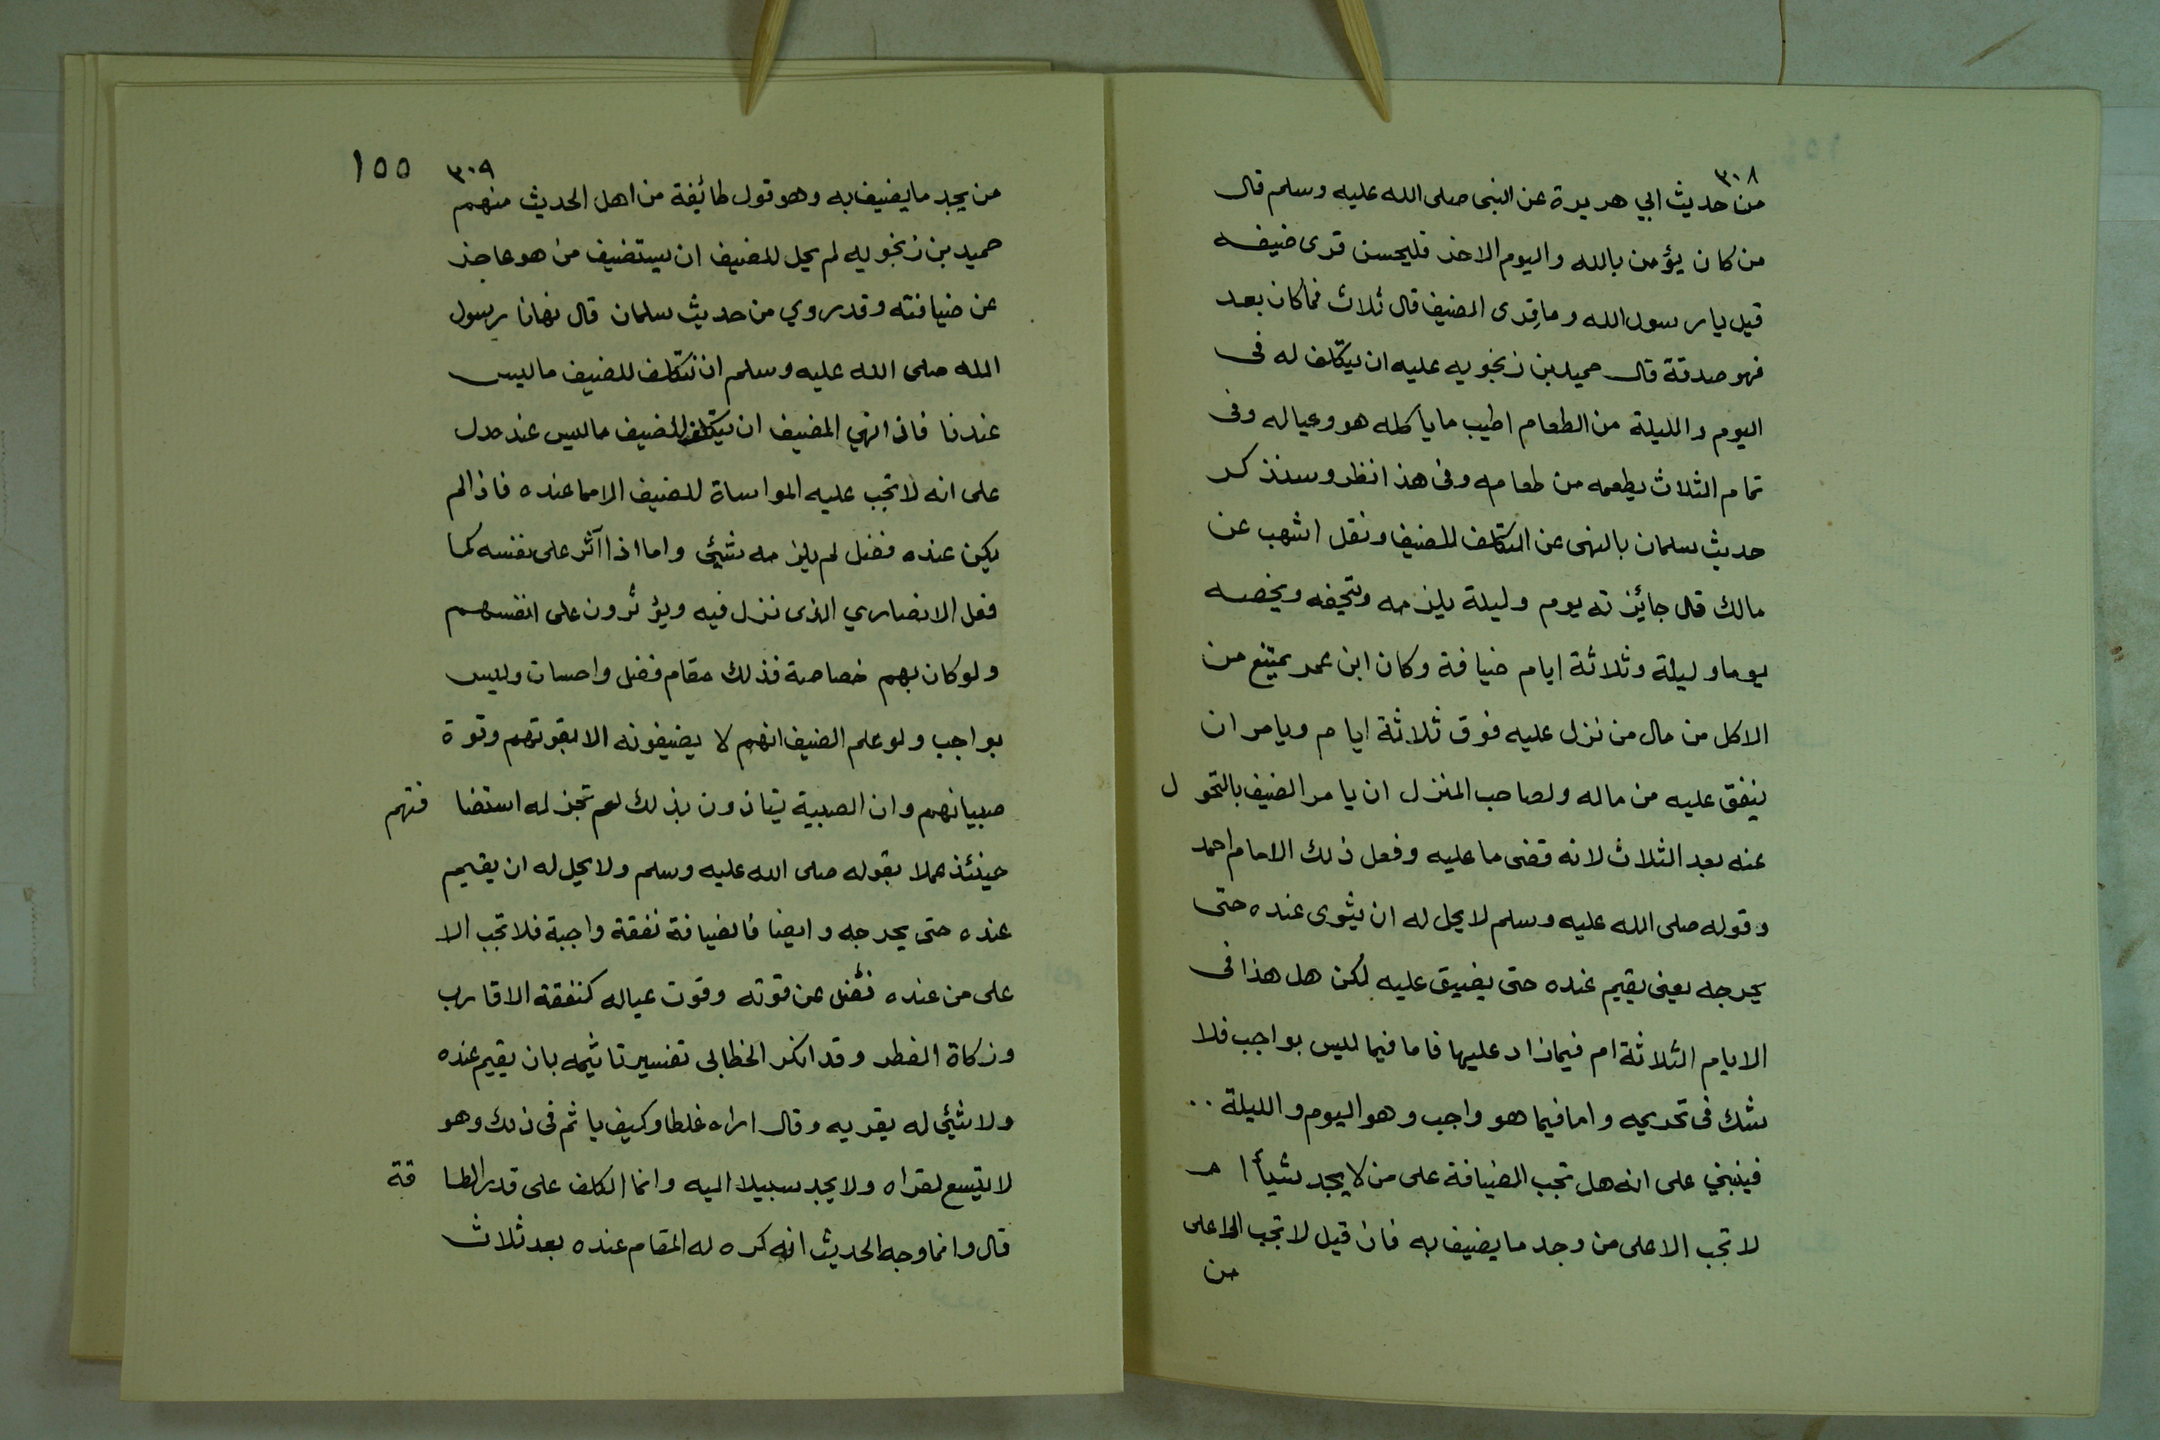 ٣٠٨
من حديث ابي هريرة عن النبى صلى الله عليه وسلم قال
من كان يؤمن بالله واليوم الاخر فليحسن قرى ضيفه
قيل يا رسول الله وما قِرى الضيف قال ثلاث فما كان بعد
فهو صدقة قال حميد بن زنجويه عليه ان يتكلف له فى
اليوم والليلة من الطعام اطيب ما ياكله هو وعياله وفى
تمام الثلاث يطعمه من طعامه وفى هذا نظر وسنذكر
حديث سلمان بالنهى عن التكلف للضيف ونقل اشهب عن
مالك قال جائزته يوم وليلة يلزمه وتحيفه ويخصه
يوما وليلة وثلاثة ايام ضيافة وكان ابن عمر يمتنع من
الاكل من مال من نزل عليه فوق ثلاثة ايام ويامر ان
ينفق عليه من ماله ولصاحب المنزل ان يامر الضيف بالتحول
عنه بعد الثلاث لانه قضى ما عليه وفعل ذلك الامام احمد
وقوله صلى الله عليه وسلم لا يحل له ان يثوى عنده حتى
يحرجه يعنى يقيم عنده حتى يضيق عليه لكن هل هذا فى
الايام الثلاثة ام فيما زاد عليها فاما فيما ليس بواجب فلا
شك فى تحريمه واما فيما هو واجب وهو اليوم والليلة ..
فينبني على انه هل تجب الضيافة على من لا يجد شيأ ام
لا تجب الا على من وجد ما يضيف به فان قيل لا تجب الا على
من
٣٠٩ ١٥٥
من يجد ما يضيف به وهو قول طائفة من اهل الحديث منهم
حميد بن زنجويه لم يحل للضيف ان يستضيف من هو عاجز
عن ضيافته وقد روي من حديث سلمان قال نهانا رسول
الله صلى الله عليه وسلم ان نتكلف للضيف ما ليس
عندنا فاذا نهي المضيف ان يتكلف للضيف ما ليس عنده دل
على انه لا تجب عليه المواساة للضيف الا مما عنده فاذا لم
يكن عنده فضل لم يلزمه شيئ واما اذا آثر على نفسه كما
فعل الانصاري الذى نزل فيه ويؤثرون على انفسهم
ولو كان بهم خصاصة فذلك مقام فضل واحسان وليس
بواجب ولو علم الضيف انهم لا يضيفونه الا بقوتهم وقوة
صبيانهم وان الصبية يتاذون بذلك لم تجز له استضافتهم
حينئذ عملا بقوله صلى الله عليه وسلم ولا يحل له ان يقيم
عنده حتى يحرجه وايضا فالضيافة نفقة واجبة فلا تجب الا
على من عنده فضل عن قوته وقوت عياله كنفقة الاقارب
وزكاة الفطر وقد انكر الخطابى تفسير تاثيمه بان يقيم عنده
ولا شيئ له يقريه وقال اراه غلطا وكيف ياثم فى ذلك وهو
لا يتسع لقراه ولا يجد سبيلا اليه وانما الكلف على قدر الطاقة
قال وانما وجه الحديث انه كره له المقام عنده بعد ثلاث